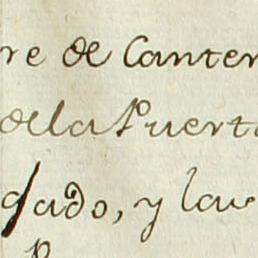 re de Canter
de la Puerta
gado, y lav